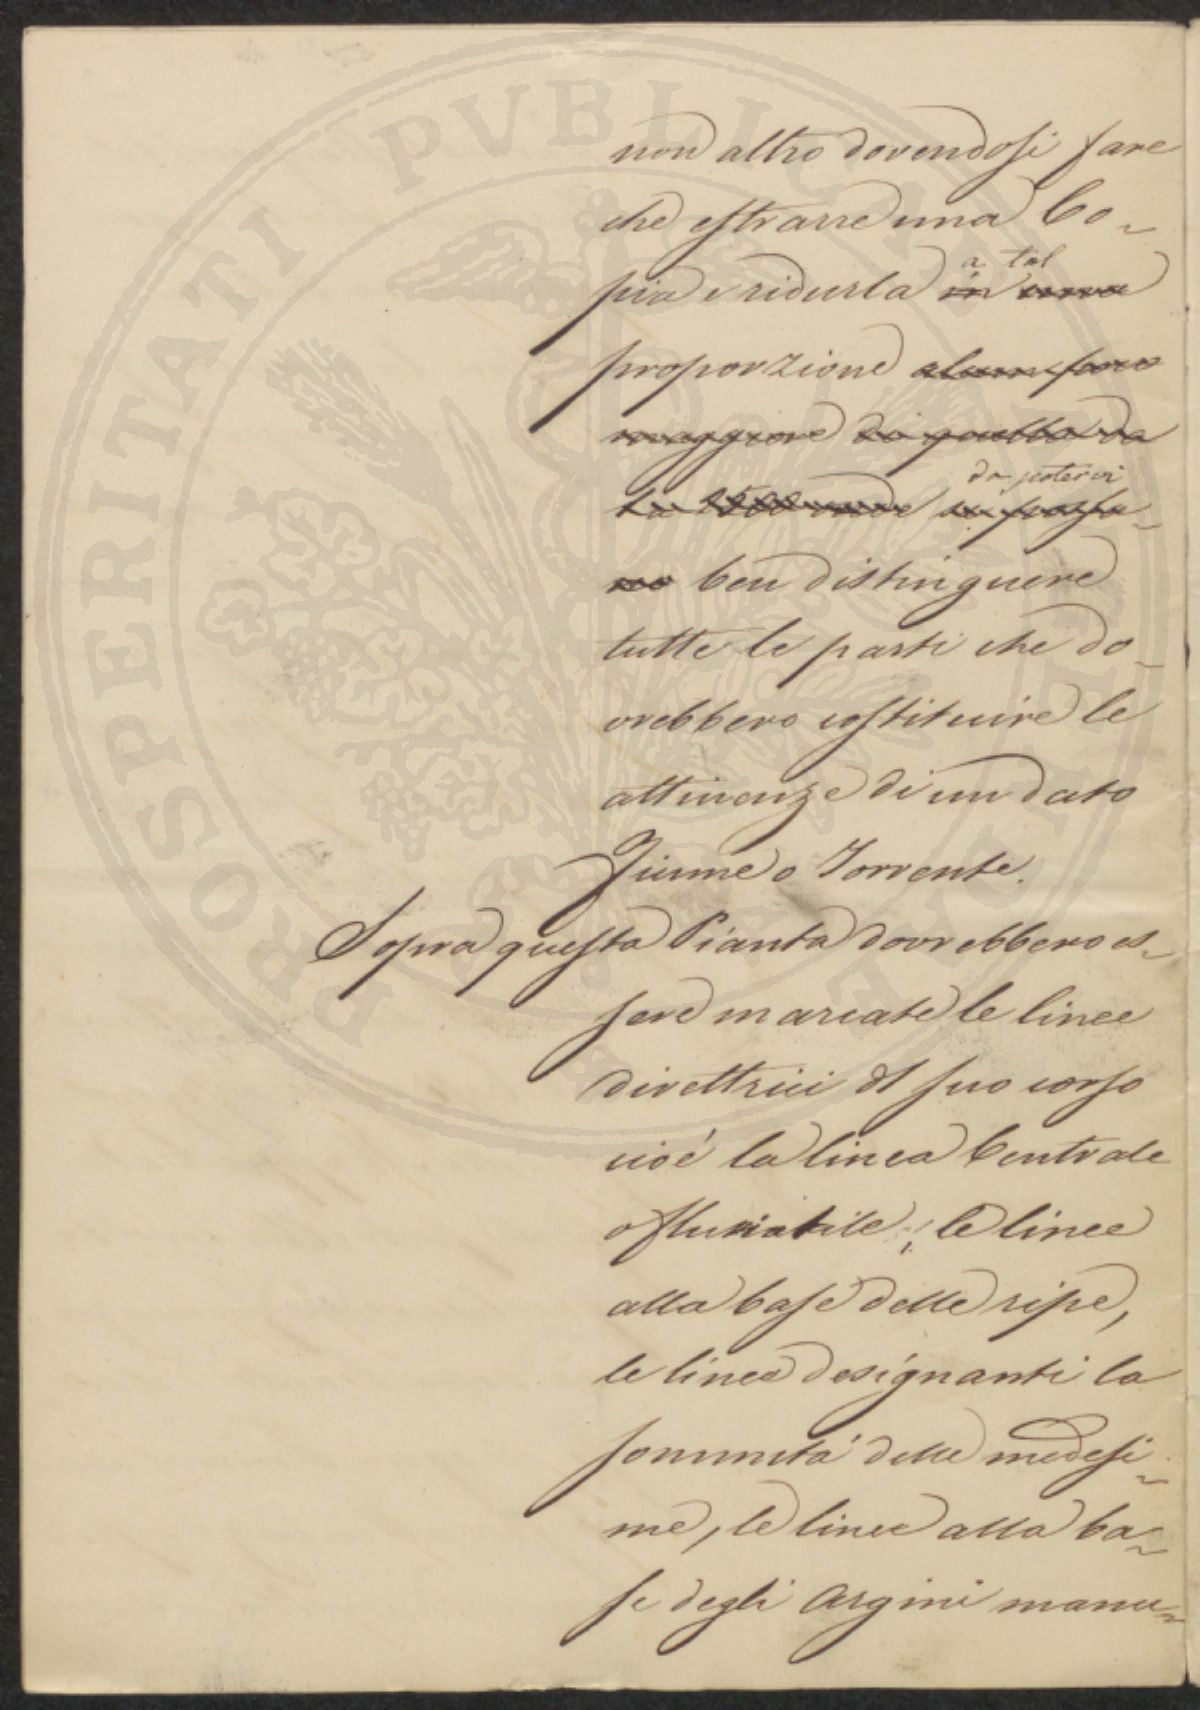 non altro dovendosi fare
che estrarre una Co-
pia e ridurla in una a tal
proporzione alcun poco
maggiore di quella da
da potervi
ben distinguere
tutte le parti che do-
vrebbero costituire le
attinenze di un dato
Fiume o Torrente.
Sopra questa Pianta dovrebbero es-
sere marcate le linee
direttrici del suo corso
cioè la linea Centrale
o fluviatile; le linee
alla base delle ripe,
le linee designanti la
sommità delle medesi-
me, le linee alla ba-
se degli Argini manu-
PROSPERITATI PVBLICAE